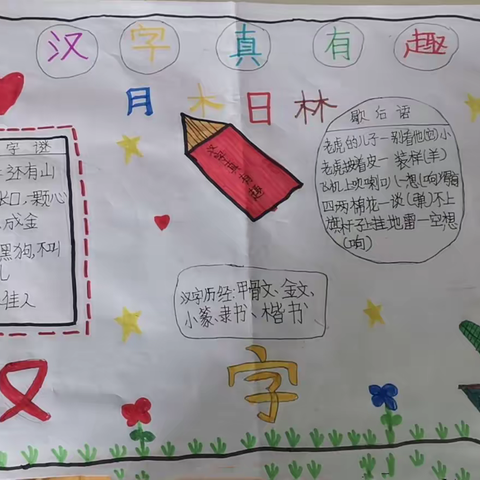 汉字真有趣
月木日林
字谜
还有山
口,一颗心
成金
黑狗,不叫
佳人
歇后语
老虎的儿子一别看他(它)小
老虎披着皮一装样(羊)
飞机上吹喇叭一想(响)得高
四两棉花一谈(弹)不上
旗杆子上挂地雷一空想
(响)
汉字历经:甲骨文、金文、
小篆、隶书、楷书
汉字